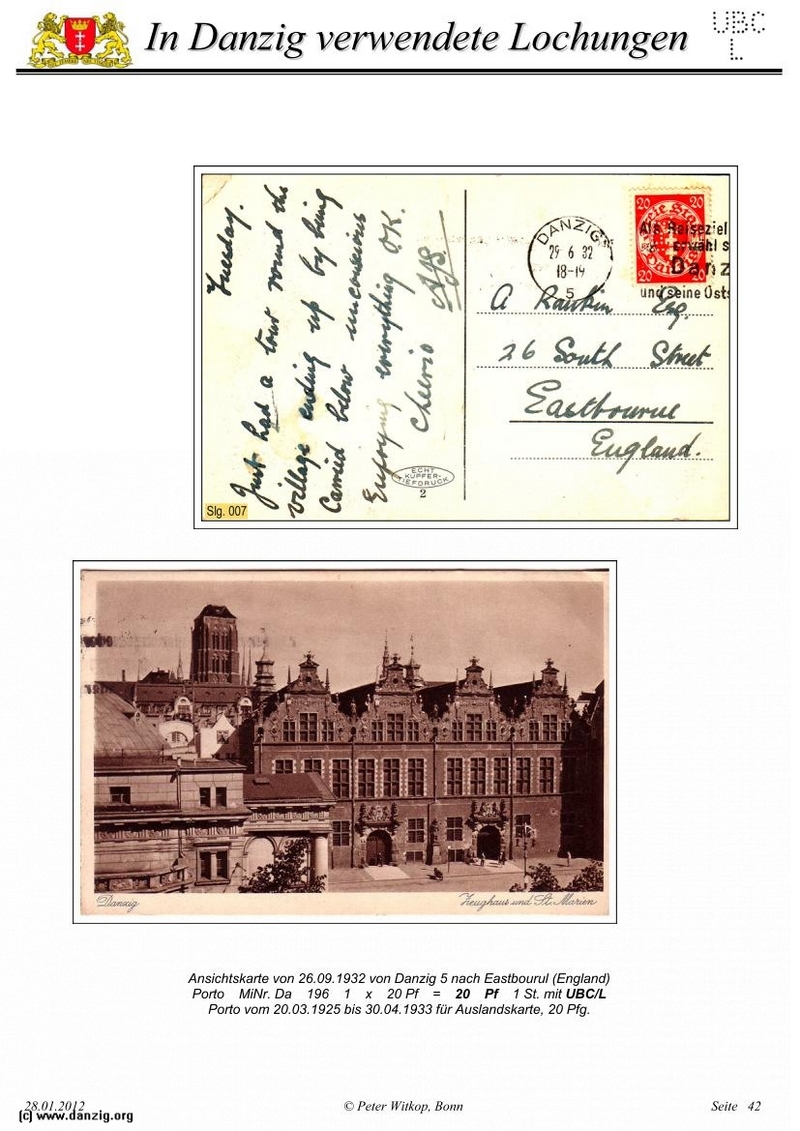 In Danzig verwendete Lochungen
UBC
L
Tuesday.
Just had a tour round the
village ending up by being
carried below unconscious
Enjoying everything OK.
Cheerio AJS
ECHT
KUPFER-
TIEFDRUCK
2
Slg. 007
DANZIG
29 6 32
18-19
5
20 20
Freie Stadt
Danzig
20 20
Als Reiseziel
erwähl s
Danz
und seine Osts
A Rankin Esq.
26 South Street
Eastbourne
England.
Danzig
Zeughaus und St. Marien
Ansichtskarte von 26.09.1932 von Danzig 5 nach Eastbourul (England)
Porto MiNr. Da 196 1 x 20 Pf = 20 Pf 1 St. mit UBC/L
Porto vom 20.03.1925 bis 30.04.1933 für Auslandskarte, 20 Pfg.
28.01.2012
© Peter Witkop, Bonn
Seite 42
(c) www.danzig.org